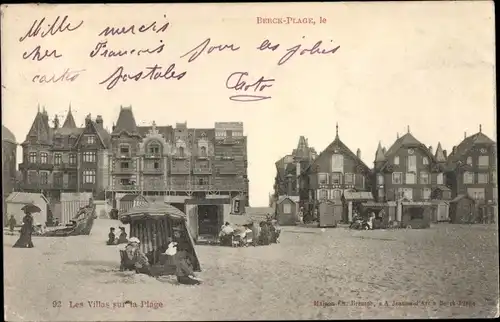 BERCK-PLAGE, le
Mille mercis
cher Francis pour les jolies
cartes postales
Toto
92 Les Villas sur la Plage